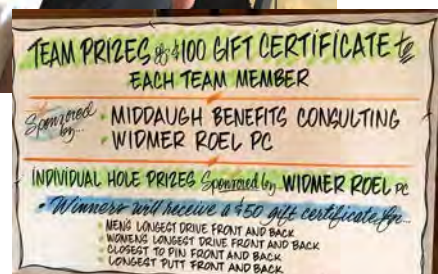 TEAM PRIZES $100 GIFT CERTIFICATE to
EACH TEAM MEMBER
Sponsored
by...
• MIDDAUGH BENEFITS CONSULTING
• WIDMER ROEL PC
INDIVIDUAL HOLE PRIZES Sponsored by WIDMER ROEL PC
• Winners will receive a $50 gift certificate for...
• MENS LONGEST DRIVE FRONT AND BACK
• WOMENS LONGEST DRIVE FRONT AND BACK
• CLOSEST TO PIN FRONT AND BACK
• LONGEST PUTT FRONT AND BACK